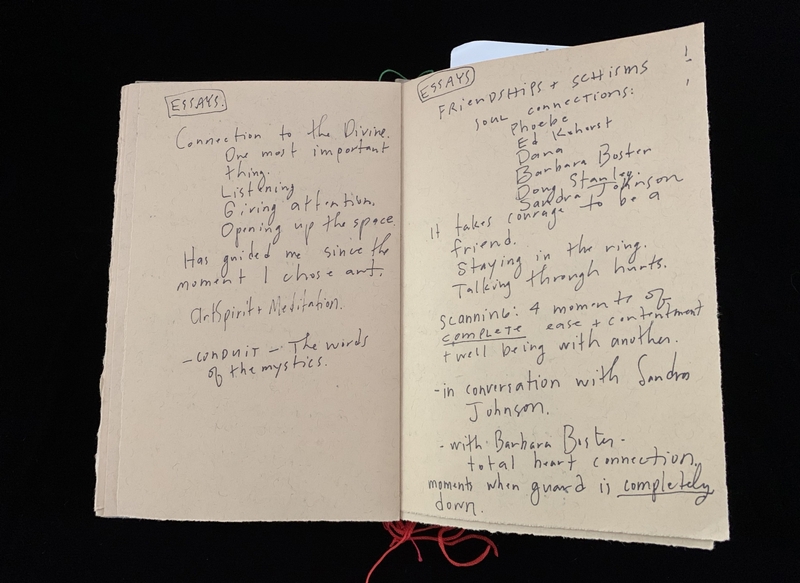 ESSAYS.
Connection to the Divine.
One most important
thing.
Listening
Giving attention.
Opening up the space.
Has guided me since the
moment I chose art.
ArtSpirit + Meditation.
- CONDUIT - The words
of the mystics.
ESSAYS
FRIENDSHIPS + SCHISMS
SOUL CONNECTIONS:
Phoebe
Ed Kohorst
Dana
Barbara Boster
Doug Stanley.
Sandra Johnson
It takes courage to be a
friend.
Staying in the ring.
Talking through hurts.
SCANNING: 4 moments of
complete ease + contentment
+ well being with another.
- in conversation with Sandra
Johnson.
- with Barbara Boster -
total heart connection.
moments when guard is completely
down.